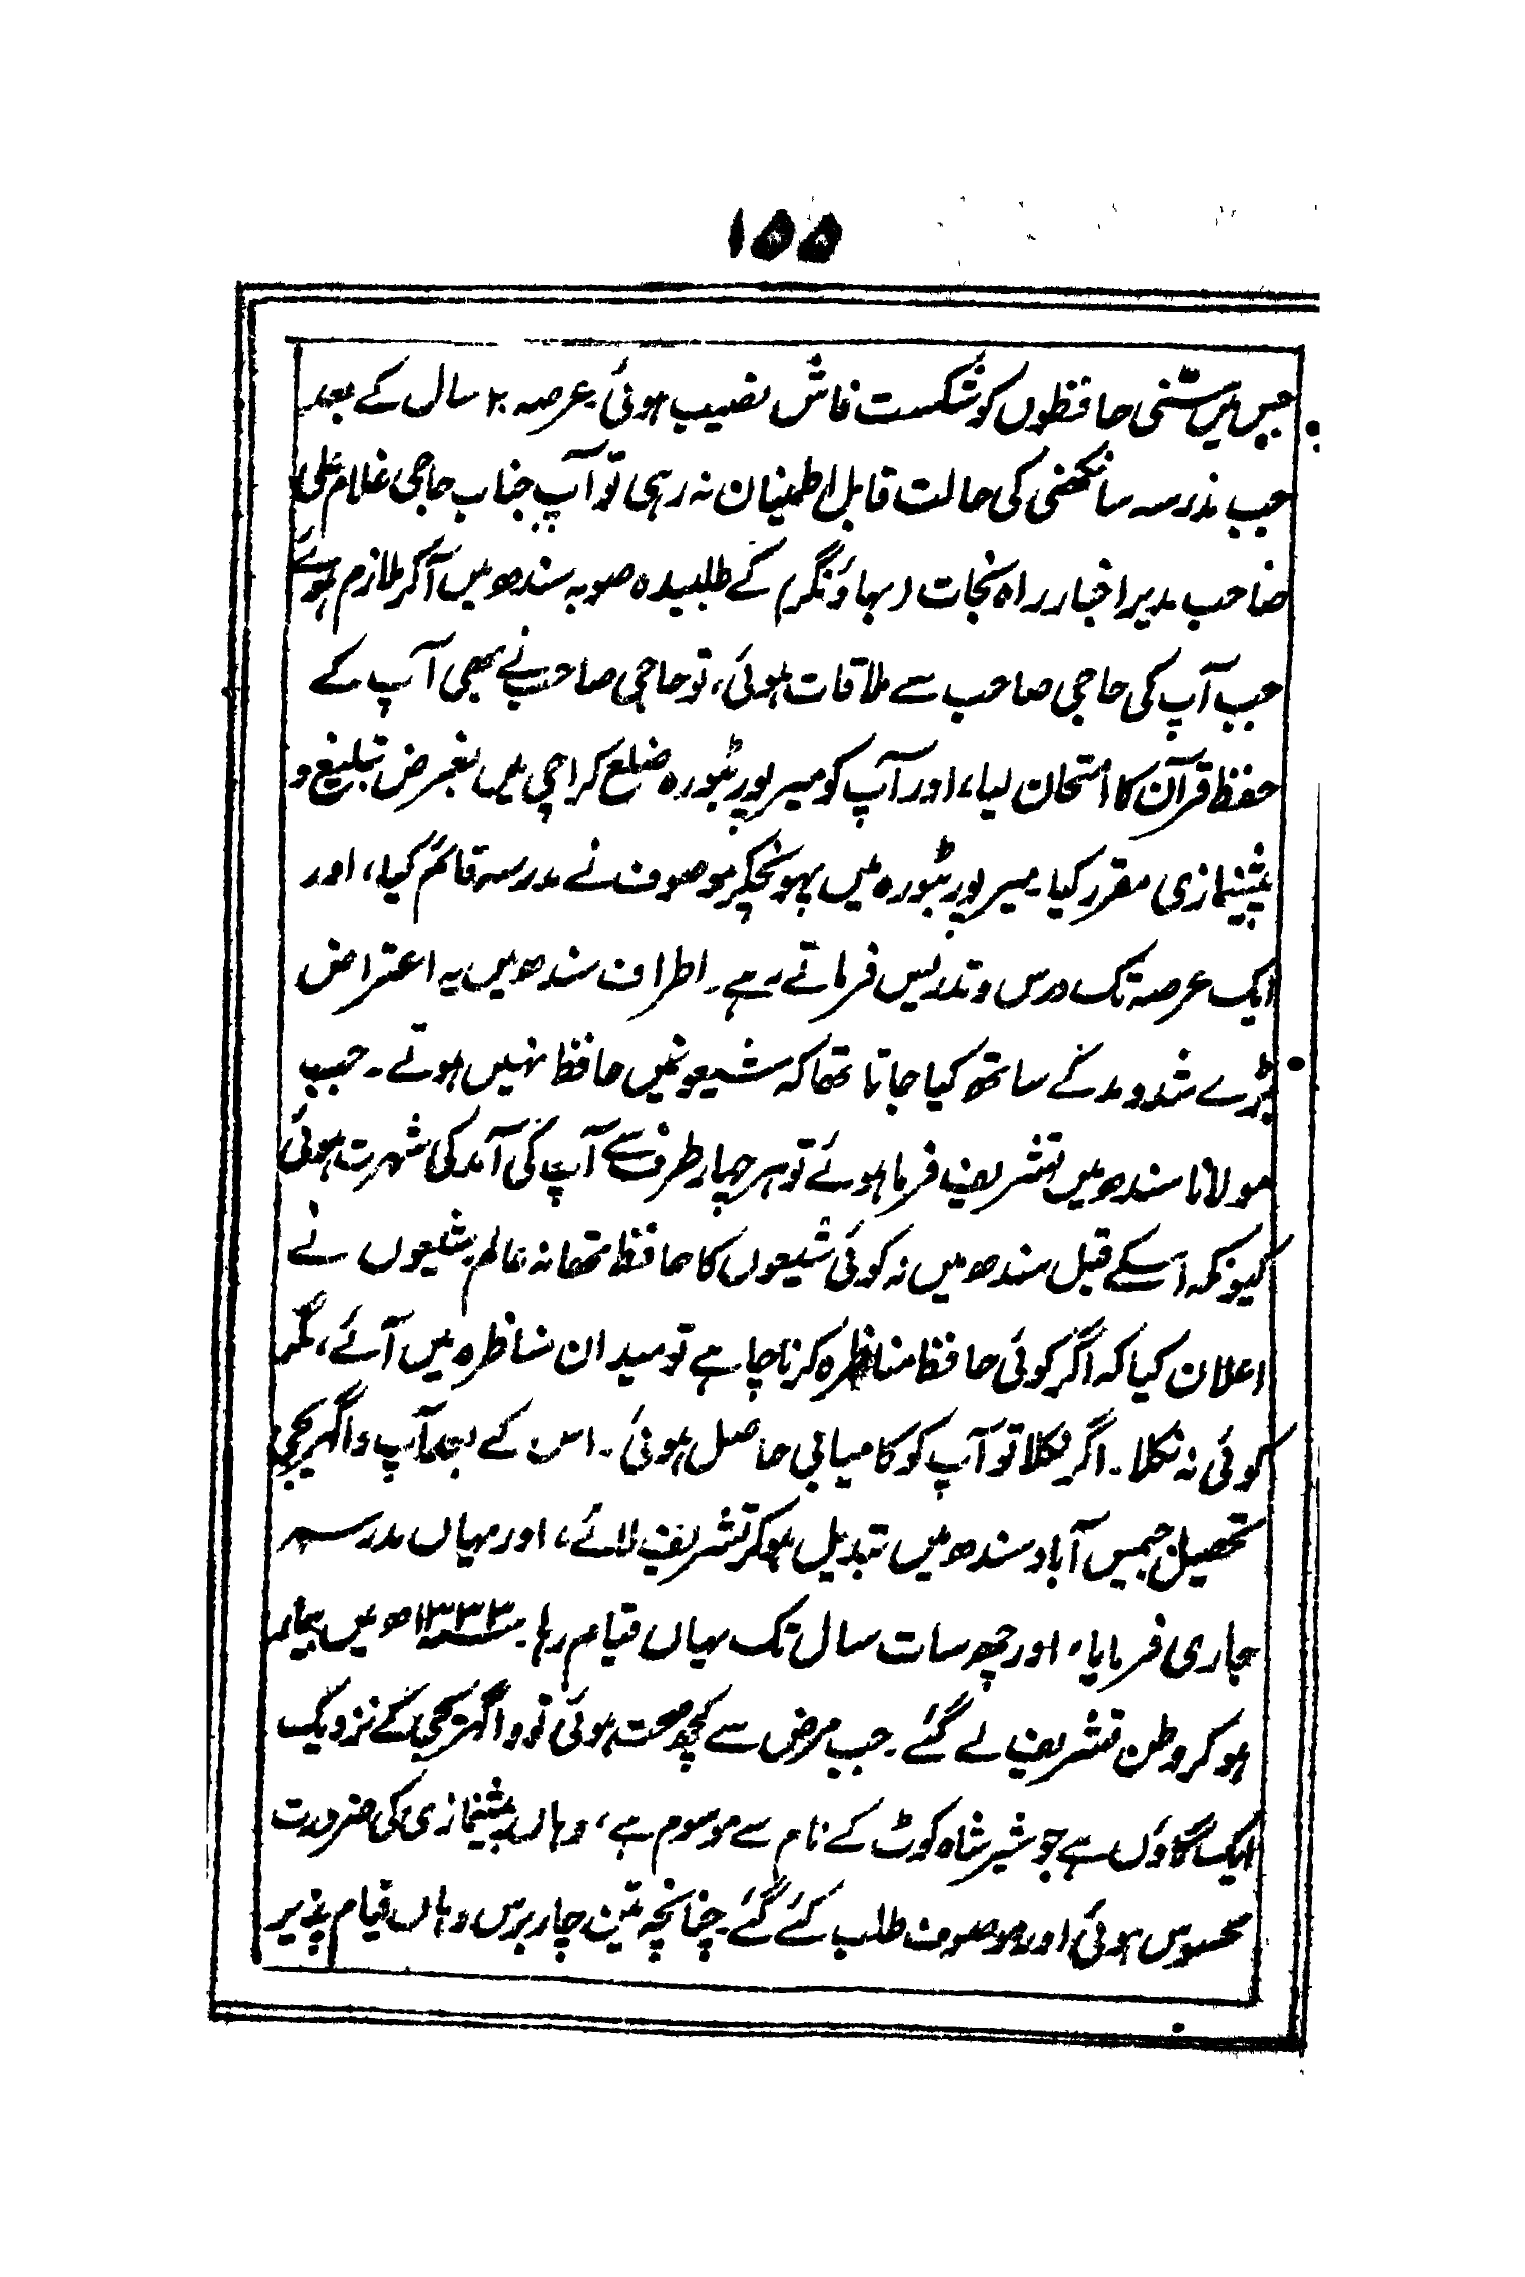 ۱۵۵
جس میں سُنّی حافظوں کو شکست فاش نصیب ہوئی۔ عرصہ ۲ سال کے بعد
جب مدرسہ سانکھنی کی حالت قابل اطمینان نہ رہی تو آپ جناب حاجی غلام علی
صاحب مدیر اخبار راہ نجات (بہاؤنگر) کے طلبیدہ صوبہ سندھ میں آکر ملازم ہوئے
جب آپ کی حاجی صاحب سے ملاقات ہوئی، تو حاجی صاحب نے بھی آپ کے
حفظ قرآن کا امتحان لیا، اور آپ کو میر پور بٹورہ ضلع کراچی میں بغرض تبلیغ و
پیشنمازی مقرر کیا۔ میر پور بٹورہ میں پہونچکر موصوف نے مدرسہ قائم کیا، اور
ایک عرصہ تک درس و تدریس فرماتے رہے۔ اطراف سندھ میں یہ اعتراض
بڑے شد و مد کے ساتھ کیا جاتا تھا کہ شیعونمیں حافظ نہیں ہوتے۔ جب
مولانا سندھ میں تشریف فرما ہوئے تو ہر چہار طرف سے آپ کی آمد کی شہرت ہوئی
کیونکہ اسکے قبل سندھ میں نہ کوئی شیعوں کا حافظ تھا نہ عالم۔ شیعوں نے
اعلان کیا کہ اگر کوئی حافظ مناظرہ کرنا چاہے تو میدان مناظرہ میں آئے، مگر
کوئی نہ نکلا۔ اگر نکلا تو آپ کو کامیابی حاصل ہوئی۔ اس کے بعد آپ واگھریجی
تحصیل جمیس آباد سندھ میں تبدیل ہوکر تشریف لائے، اور یہاں مدرسہ
جاری فرمایا، اور چھ سات سال تک یہاں قیام رہا۔ سنہ ۱۳۳۳ھ میں بیمار
ہو کر وطن تشریف لے گئے۔ جب مرض سے کچھ صحت ہوئی تو واگھریجی کے نزدیک
ایک گاؤں ہے جو شیر شاہ کوٹ کے نام سے موسوم ہے، وہاں پیشنمازی کی ضرورت
محسوس ہوئی اور موصوف طلب کئے گئے۔ چنانچہ تین چار برس وہاں قیام پذیر